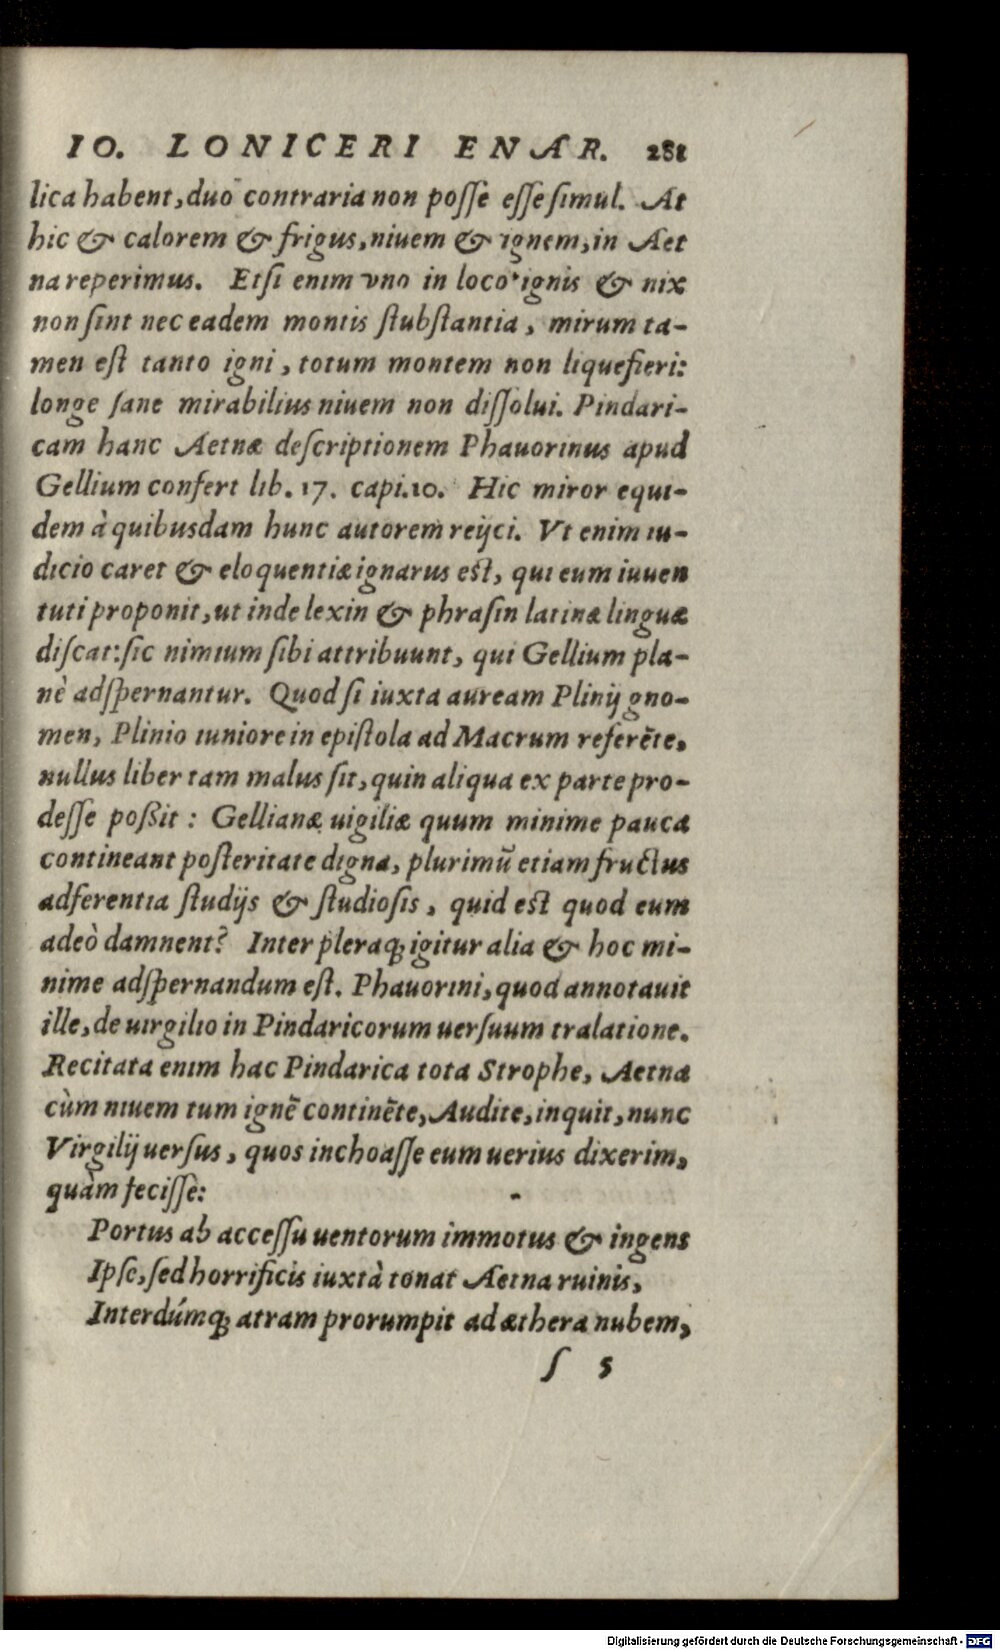 IO. LONICERI ENAR. 281
lica habent, duo contraria non posse esse simul. At
hic & calorem & frigus, niuem & ignem, in Aet
na reperimus. Etsi enim vno in loco ignis & nix
non sint nec eadem montis stubstantia, mirum ta-
men est tanto igni, totum montem non liquefieri:
longe sane mirabilius niuem non dissolui. Pindari-
cam hanc Aetnæ descriptionem Phauorinus apud
Gellium confert lib. 17. capi. 10. Hic miror equi-
dem à quibusdam hunc autorem reijci. Vt enim iu-
dicio caret & eloquentiæ ignarus est, qui eum iuuen
tuti proponit, ut inde lexin & phrasin latinæ linguæ
discat: sic nimium sibi attribuunt, qui Gellium pla-
nè adspernantur. Quod si iuxta auream Plinij gno-
men, Plinio iuniore in epistola ad Macrum referēte,
nullus liber tam malus sit, quin aliqua ex parte pro-
desse poßit: Gellianæ uigiliæ quum minime pauca
contineant posteritate digna, plurimū etiam fructus
adferentia studijs & studiosis, quid est quod eum
adeò damnent? Inter pleraq; igitur alia & hoc mi-
nime adspernandum est. Phauorini, quod annotauit
ille, de uirgilio in Pindaricorum uersuum tralatione.
Recitata enim hac Pindarica tota Strophe, Aetna
cùm niuem tum ignē continēte, Audite, inquit, nunc
Virgilij uersus, quos inchoasse eum uerius dixerim,
quàm fecisse:
Portus ab accessu uentorum immotus & ingens
Ipse, sed horrificis iuxtà tonat Aetna ruinis,
Interdúmq; atram prorumpit ad æthera nubem,
s 5
Digitalisierung gefördert durch die Deutsche Forschungsgemeinschaft - DFG